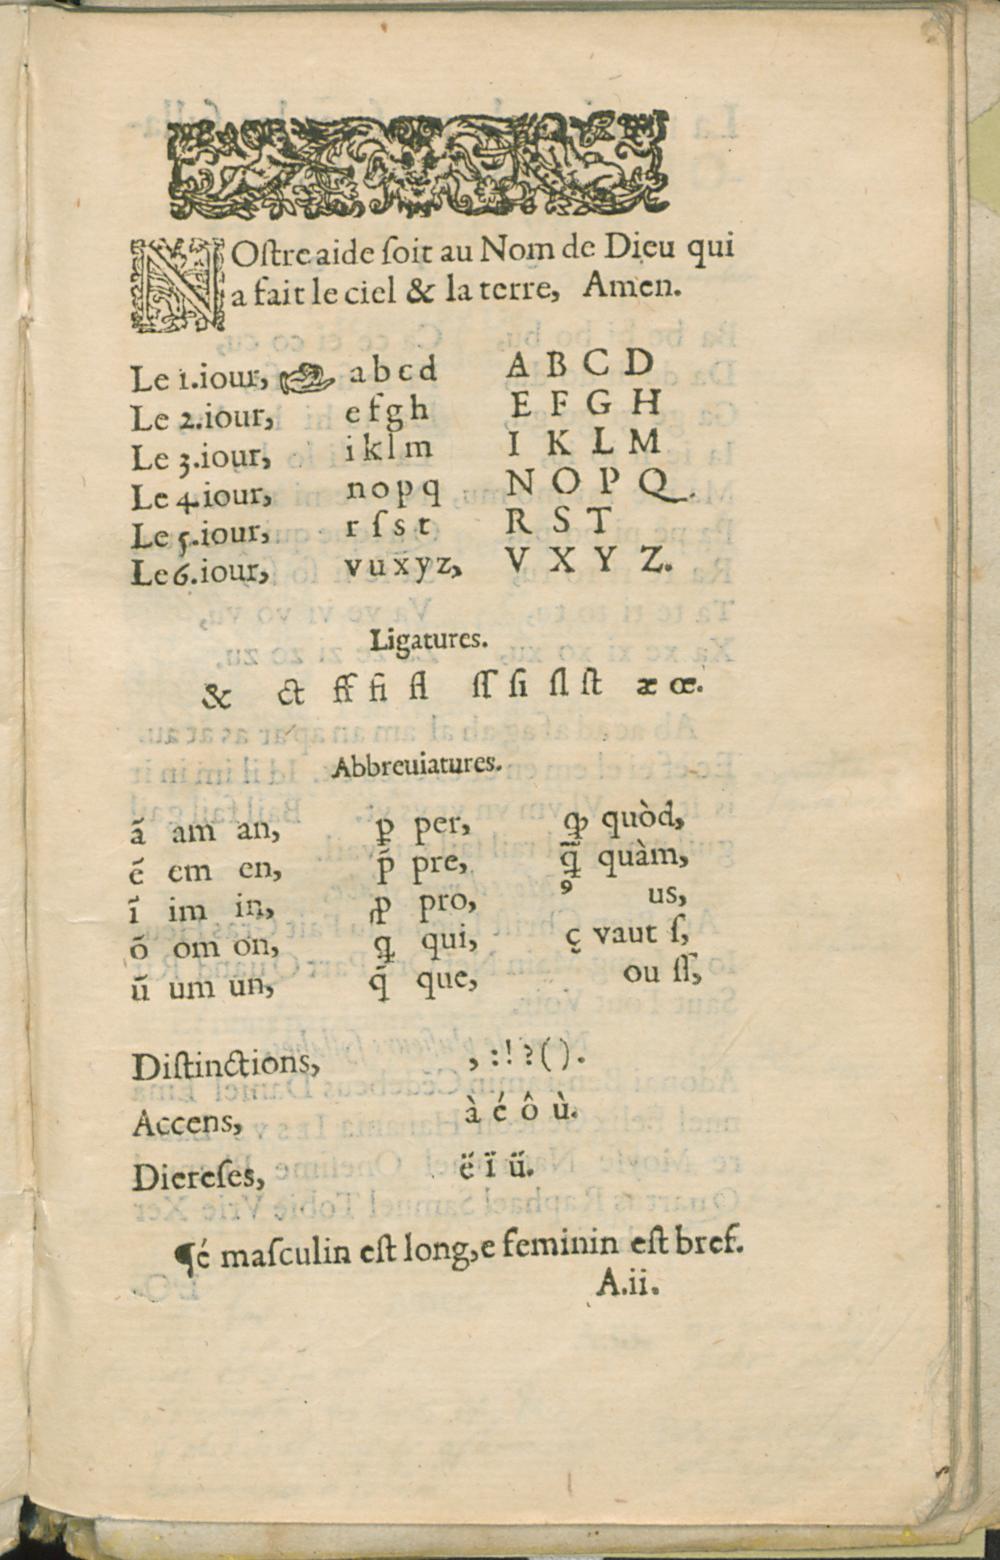 NOſtre aide ſoit au Nom de Dieu qui
a fait le ciel & la terre, Amen.
Le 1.iour, ☞ a b c d A B C D
Le 2.iour, e f g h E F G H
Le 3.iour, i k l m I K L M
Le 4.iour, n o p q N O P Q.
Le 5.iour, r ſ s t R S T
Le 6.iour, v u x y z, V X Y Z.
Ligatures.
& ct ff fi fl ſſ ſi ſl ſt æ œ.
Abbreuiatures.
ā am an, ꝑ per, ꝙ quòd,
ē em en, p̄ pre, ꝗ̄ quàm,
ī im in, ꝓ pro, ꝰ us,
ō om on, ꝗ qui, ç vaut ſ,
ū um un, q̄ que, ou ſſ,
Diſtinctions, , : ! ? ( ) .
Accens, à é ô ù.
Diereſes, ë ï ü.
¶é maſculin eſt long, e feminin eſt bref.
A.ii.